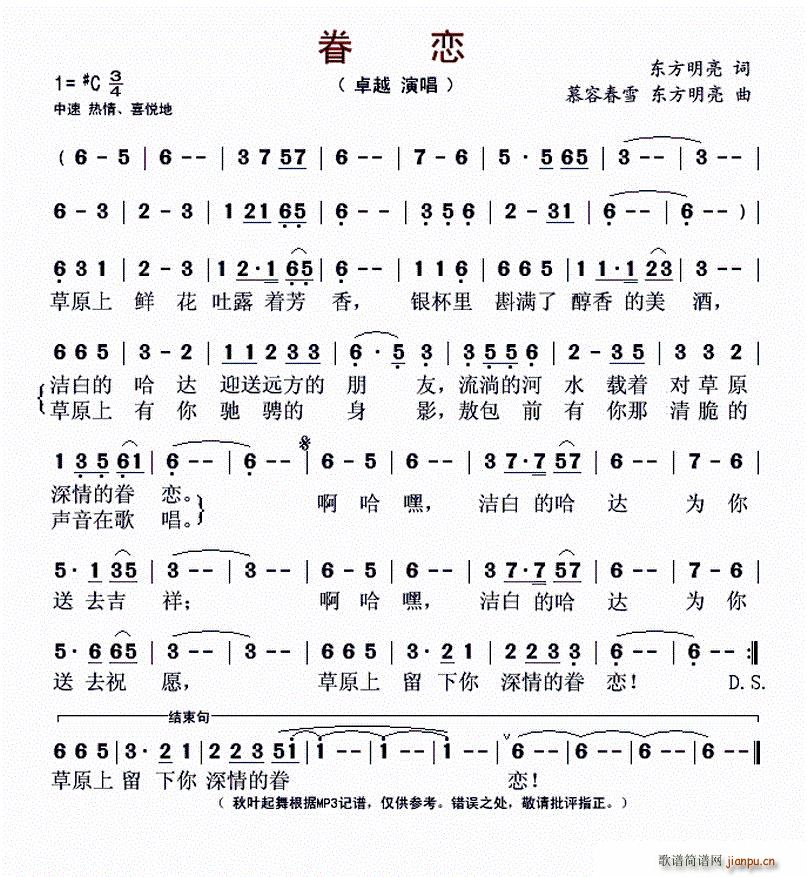 眷 恋
1= #C 3/4
（ 卓越 演唱 ）
东方明亮 词
中速 热情、喜悦地
慕容春雪 东方明亮 曲
( 6 - 5 | 6 - - | 3 7 5 7 | 6 - - | 7 - 6 | 5 · 5 6 5 | 3 - - | 3 - - |
6 - 3 | 2 - 3 | 1 2 1 6 5 | 6 - - | 3 5 6 | 2 - 3 1 | 6 - - | 6 - - ) |
6 3 1 | 2 - 3 | 1 2 · 1 6 5 | 6 - - | 1 1 6 | 6 6 5 | 1 1 · 1 2 3 | 6 - - |
草原上 鲜 花 吐露 着芳 香， 银杯里 斟满了 醇香 的美 酒，
6 6 5 | 3 - 2 | 1 1 2 3 3 | 6 · 5 3 | 3 5 5 6 | 2 - 3 5 | 3 3 2 |
洁白的 哈 达 迎送远方的 朋 友，流淌的河 水 载着 对草原
草原上 有 你 驰 骋的 身 影，敖包 前 有 你那 清脆的
1 3 5 6 1 | 6 - - | 6 - - | 6 - 5 | 6 - - | 3 7 · 7 5 7 | 6 - - | 7 - 6 |
深情的眷 恋。 啊 哈 嘿， 洁白 的哈 达 为 你
声音在歌 唱。
5 · 1 3 5 | 3 - - | 3 - - | 6 - 5 | 6 - - | 3 7 · 7 5 7 | 6 - - | 7 - 6 |
送 去吉 祥； 啊 哈 嘿， 洁白 的哈 达 为 你
5 · 6 6 5 | 3 - - | 3 - - | 6 6 5 | 3 · 2 1 | 2 2 3 3 | 6 - - | 6 - - :‖
送 去祝 愿， 草原上 留 下你 深情的眷 恋！ D.S.
结束句
6 6 5 | 3 · 2 1 | 2 2 3 5 1 | 1 - - | 1 - - | 1 - - | 6 - - | 6 - - | 6 - - | 6 - - ‖
草原上 留 下你 深情的眷 恋！
（ 秋叶起舞根据MP3记谱，仅供参考。错误之处，敬请批评指正。）
歌谱简谱网 jianpu.cn